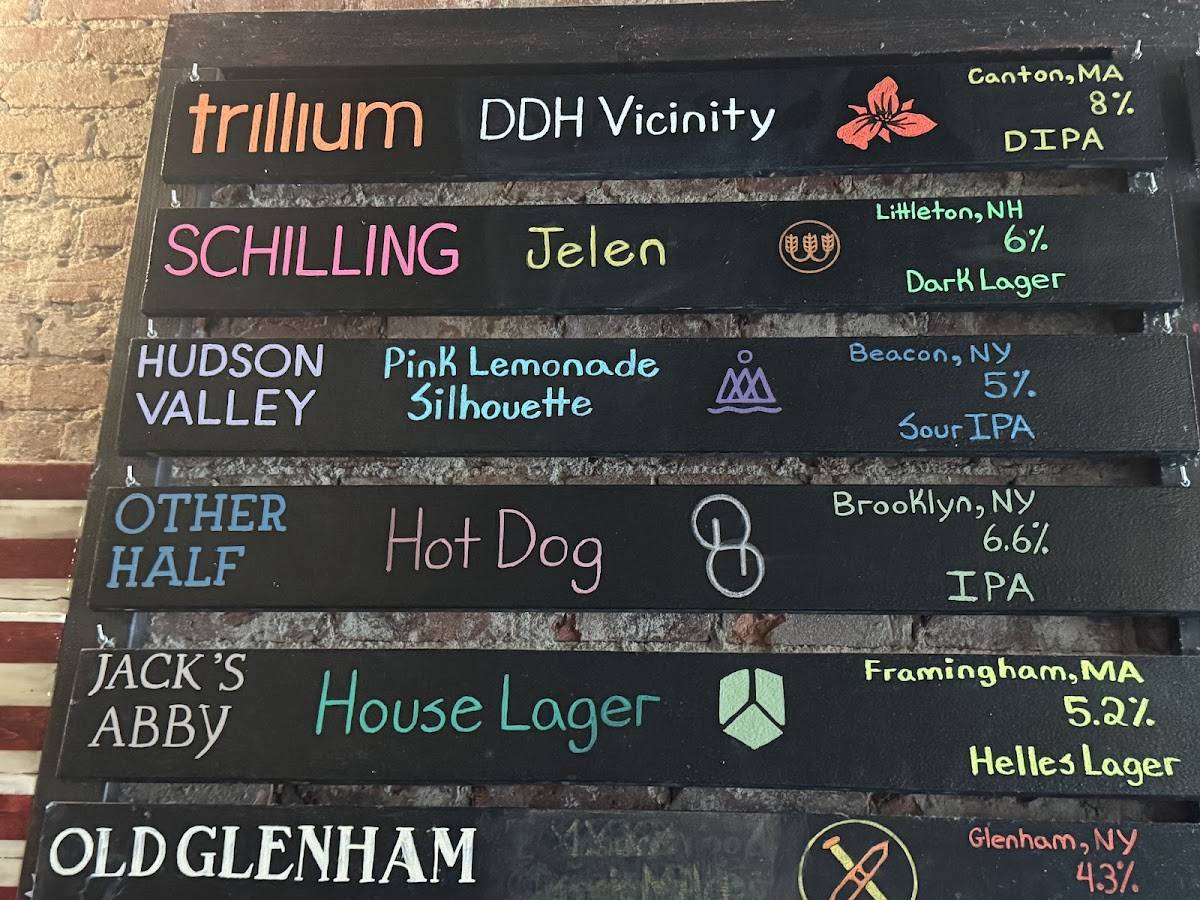 trillium DDH Vicinity Canton, MA
8%
DIPA
SCHILLING Jelen Littleton, NH
6%
Dark Lager
HUDSON
VALLEY
Pink Lemonade
Silhouette
Beacon, NY
5%
Sour IPA
OTHER
HALF
Hot Dog
Brooklyn, NY
6.6%
IPA
JACK'S
ABBY
House Lager
Framingham, MA
5.2%
Helles Lager
OLD GLENHAM
Glenham, NY
4.3%